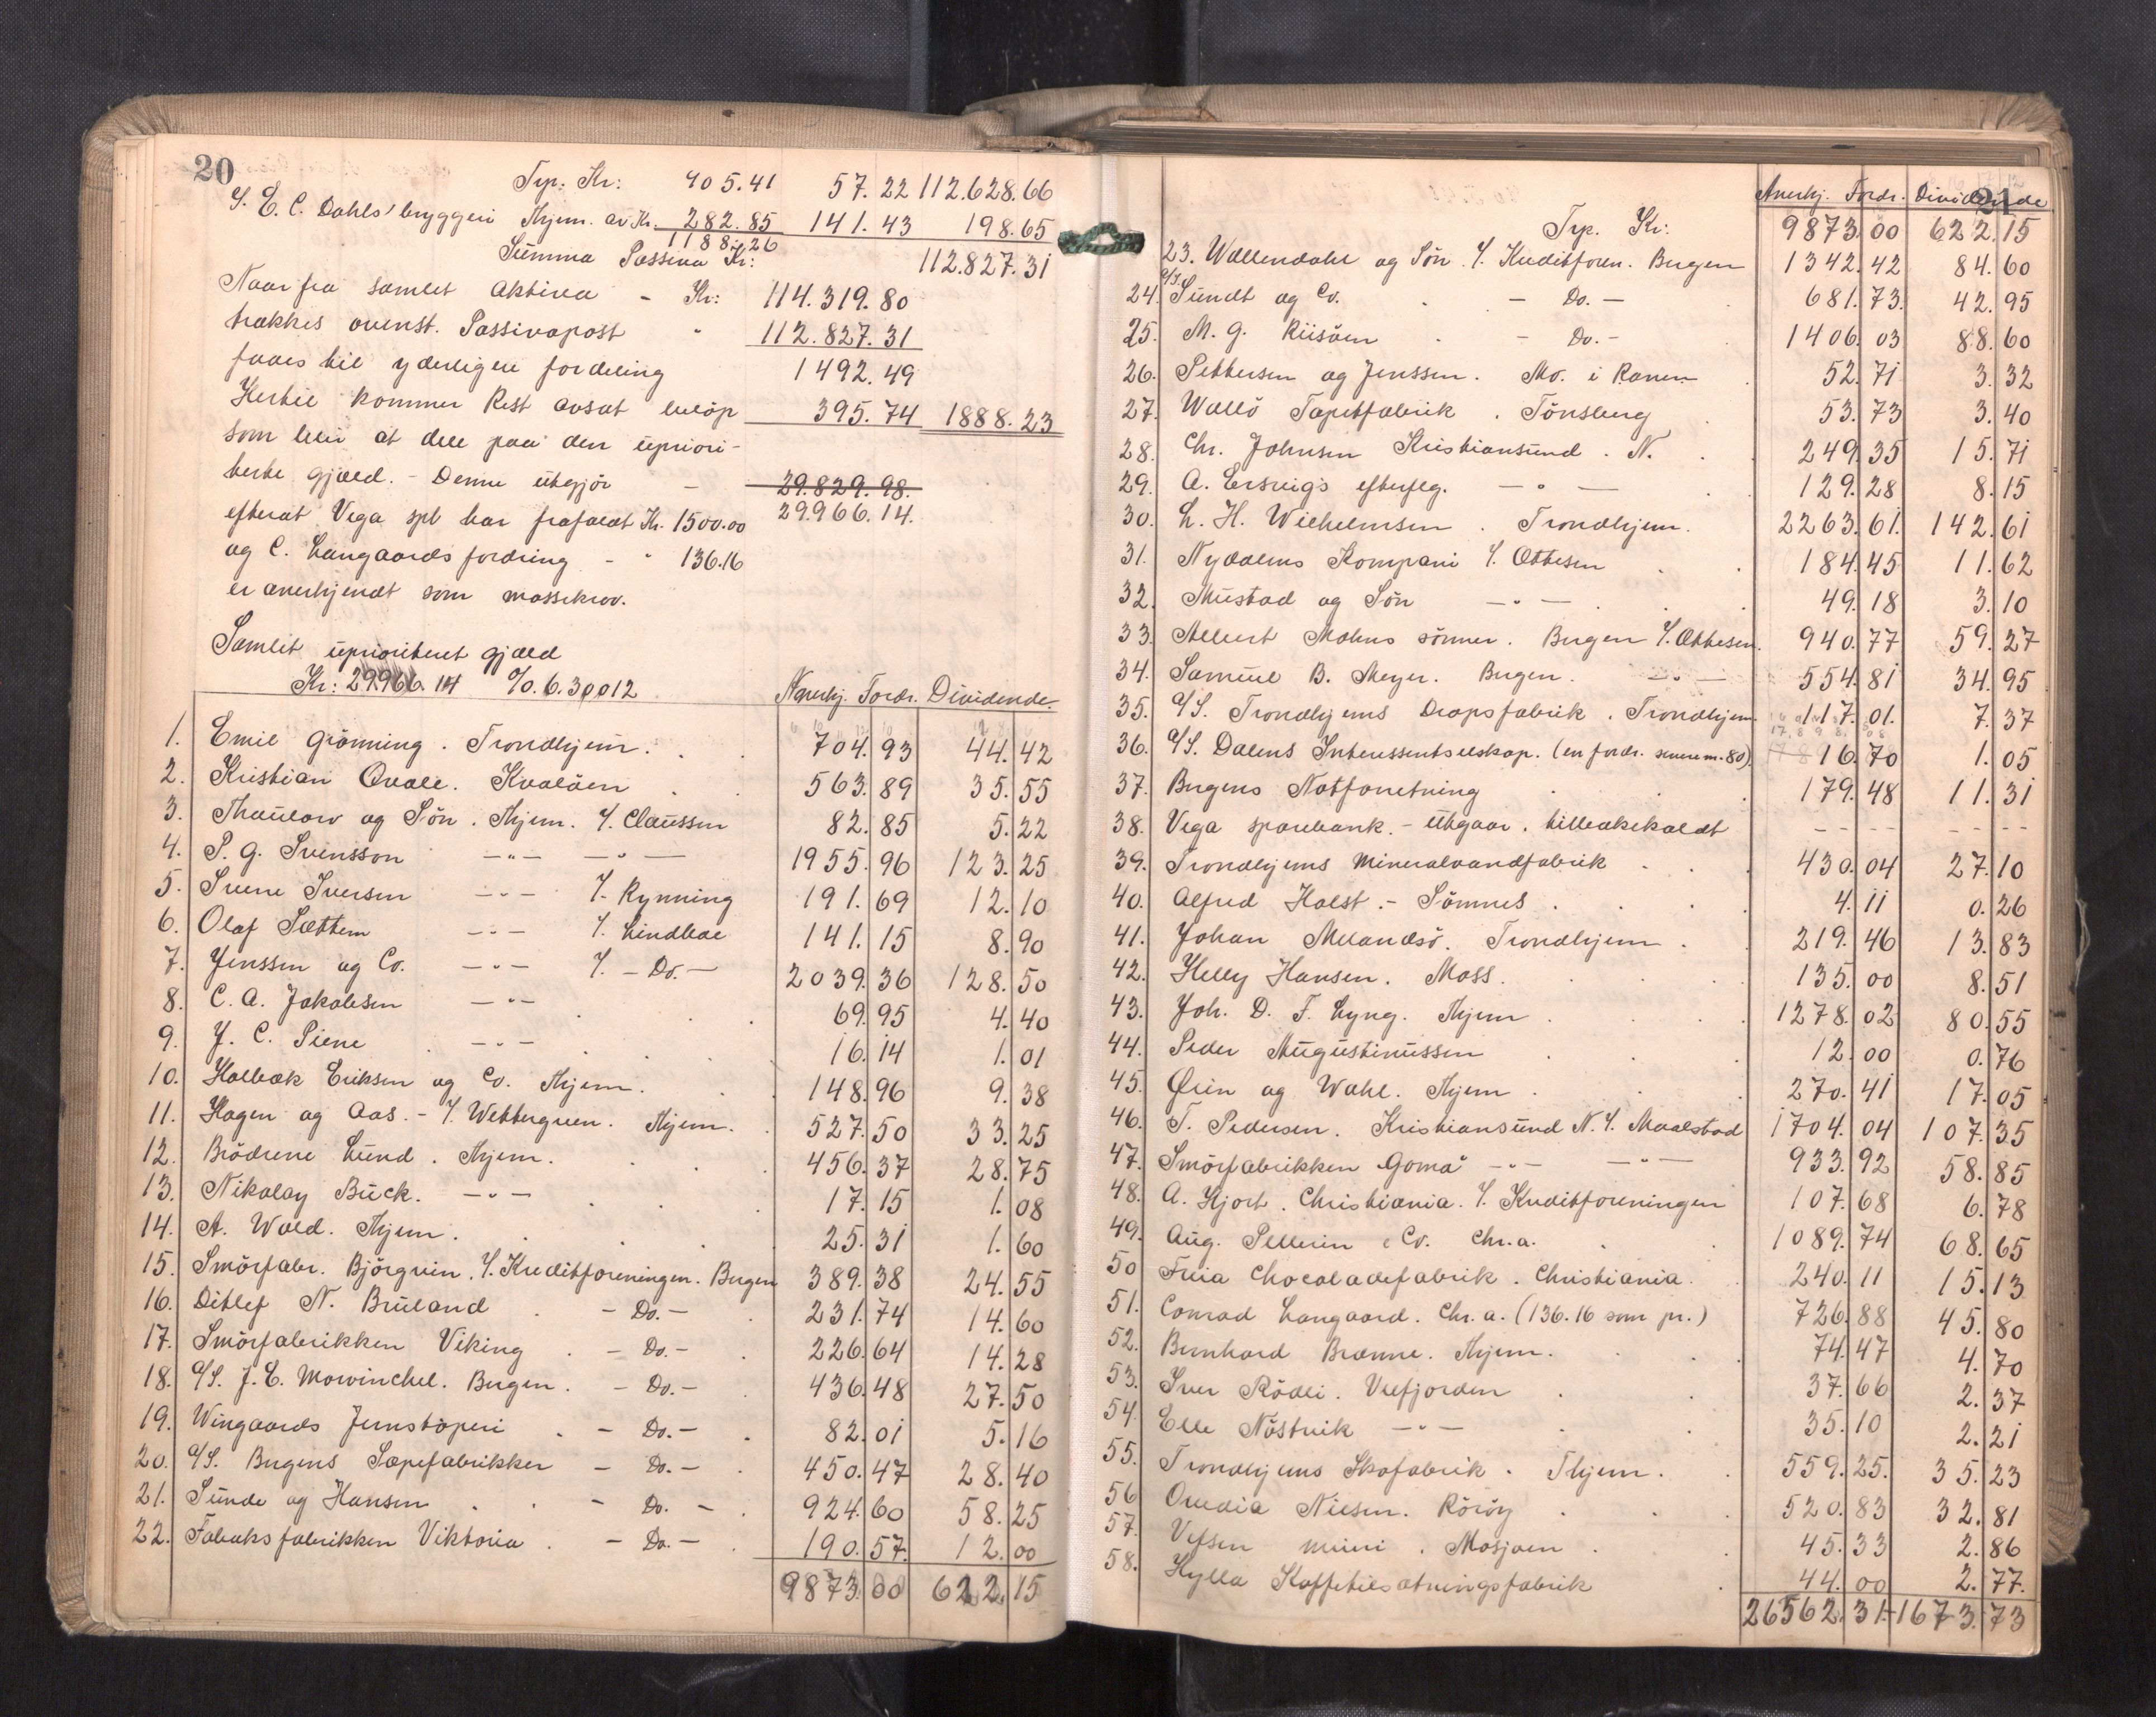 20
Trp: Kr: 405.41 57.22 112.628.66
I. E. C. Dahls' bryggeri Thjem. av Kr. 282.85 141.43 198.65
1188.26
Summa Passiva Kr: 112.827.31
Naar fra samlet aktiva - Kr: 114.319.80
trækkes ovenst. Passivapost " 112.827.31
faaes til yderligere fordeling 1492.49
Hertil kommer Rest avsat beløp 395.74 1888.23
som blir at dele paa den upriori-
terte gjæld. - Denne utgjør - 29.829.98.
efterat Vega spb har frafaldt Kr. 1500.00 29.966.14.
og C. Langaards fordring - " 136.16
er anerkjendt som massekrav.
Samlet uprioritert gjæld
Kr: 29.966.14 % 6.30012 Anerkj. Fordr. Dividende.
1. Emil Grönning. Trondhjem. 704.93 44.42
2. Kristian Qvale. Kvaløen 563.89 35.55
3. Thaulow og Søn. Thjem. I. Claussen 82.85 5.22
4. P. G. Svensson -"- -"- 1955.96 123.25
5. Sverre Iversen -"- I. Rynning 191.69 12.10
6. Olaf Sættem -"- I. Lindbæc 141.15 8.90
7. Jenssen og Co. -"- I. - Do. - 2039.36 128.50
8. C. A. Jakobsen -"- 69.95 4.40
9. J. C. Piene -"- 16.14 1.01
10. Holbæk Eriksen og Co. Thjem. 148.96 9.38
11. Hagen og Aas. - I. Wettergreen. Thjem. 527.50 33.25
12. Brödrene Lund. Thjem. 456.37 28.75
13. Nikolay Buck. -"- 17.15 1.08
14. A. Wold. Thjem. 25.31 1.60
15. Smörfabr. Björgvin. I. Kreditforeningen. Bergen 389.38 24.55
16. Ditlef N. Bruland - Do. - 231.74 14.60
17. Smörfabrikken Viking - Do. - 226.64 14.28
18. A/S. J. E. Mowinchel. Bergen. - Do. - 436.48 27.50
19. Wingaards Jernstöperi - Do. - 82.01 5.16
20. A/S. Bergens Sæpefabrikker - Do. - 450.47 28.40
21. Sunde og Hansen - Do. - 924.60 58.25
22. Tobaksfabrikken Viktoria - Do. - 190.57 12.00
9873.00 622.15
21
Anerkj. Fordr. Dividende
Trp. Kr: 9873.00 622.15
23. Wallendahl og Søn. I. Kreditforen. Bergen 1342.42 84.60
24. A/S. Sundt og Co. - Do. - 681.73. 42.95
25. M. G. Riisöen - Do. - 1406.03 88.60
26. Pettersen og Jenssen. Mo. i Ranen 52.71 3.32
27. Wallö Tapetfabrik. Tönsberg 53.73 3.40
28. Chr. Johnsen Kristiansund. N. 249.35 15.71
29. A. Ersvigs efterflg. -"- 129.28 8.15
30. L. H. Wilhelmsen. Trondhjem. 2263.61. 142.61
31. Nydalens Kompani I. Ottesen 184.45 11.62
32. Mustad og Søn -"- 49.18 3.10
33. Albert Mohns sønner. Bergen I. Ottesen. 940.77 59.27
34. Samuel B. Meyer. Bergen. -"- 554.81 34.95
35. A/S. Trondhjems Dropsfabrik. Trondhjem. 117.01. 7.37
36. A/S. Dalens Interessentselskap. (en fordr. senere m. 80) 16.70 1.05
37. Bergens Notforretning 179.48 11.31
38. Vega sparebank. - Utgaar. tilbakekaldt - - - - - - - -
39. Trondhjems Mineralvandfabrik 430.04 27.10
40. Alfred Holst. - Sömnes 4.11 0.26
41. Johan Melandsö. Trondhjem. 219.46 13.83
42. Helly Hansen. Moss. 135.00 8.51
43. Joh. D. F. Lyng. Thjem 1278.02 80.55
44. Peder Augustinussen 12.00 0.76
45. Ørin og Wahl. Thjem 270.41 17.05
46. T. Pedersen. Kristiansund N. I. Maalstad 1704.04 107.35
47. Smörfabrikken "Goma" -"- -"- 933.92 58.85
48. A. Hjort. Christiania. I. Kreditforeningen 107.68 6.78
49. Aug. Pellerin & Co. Chr.a. 1089.74 68.65
50 Freia Chocoladefabrik. Christiania. 240.11 15.13
51. Conrad Langaard. Chr.a. (136.16 som pr.) 726.88 45.80
52. Bernhard Brænne. Thjem. 74.47 4.70
53. Iver Rödli. Velfjorden 37.66 2.37
54. Elle Nöstvik -"- 35.10 2.21
55. Trondhjems Skofabrik. Thjem. 559.25. 35.23
56 Ovedia Nilsen. Rörøy 520.83 32.81
57. Vefsen meieri. Mosjøen 45.33 2.86
58. Hylla Kaffetilsætningsfabrik 44.00 2.77.
26562.31 1673.73